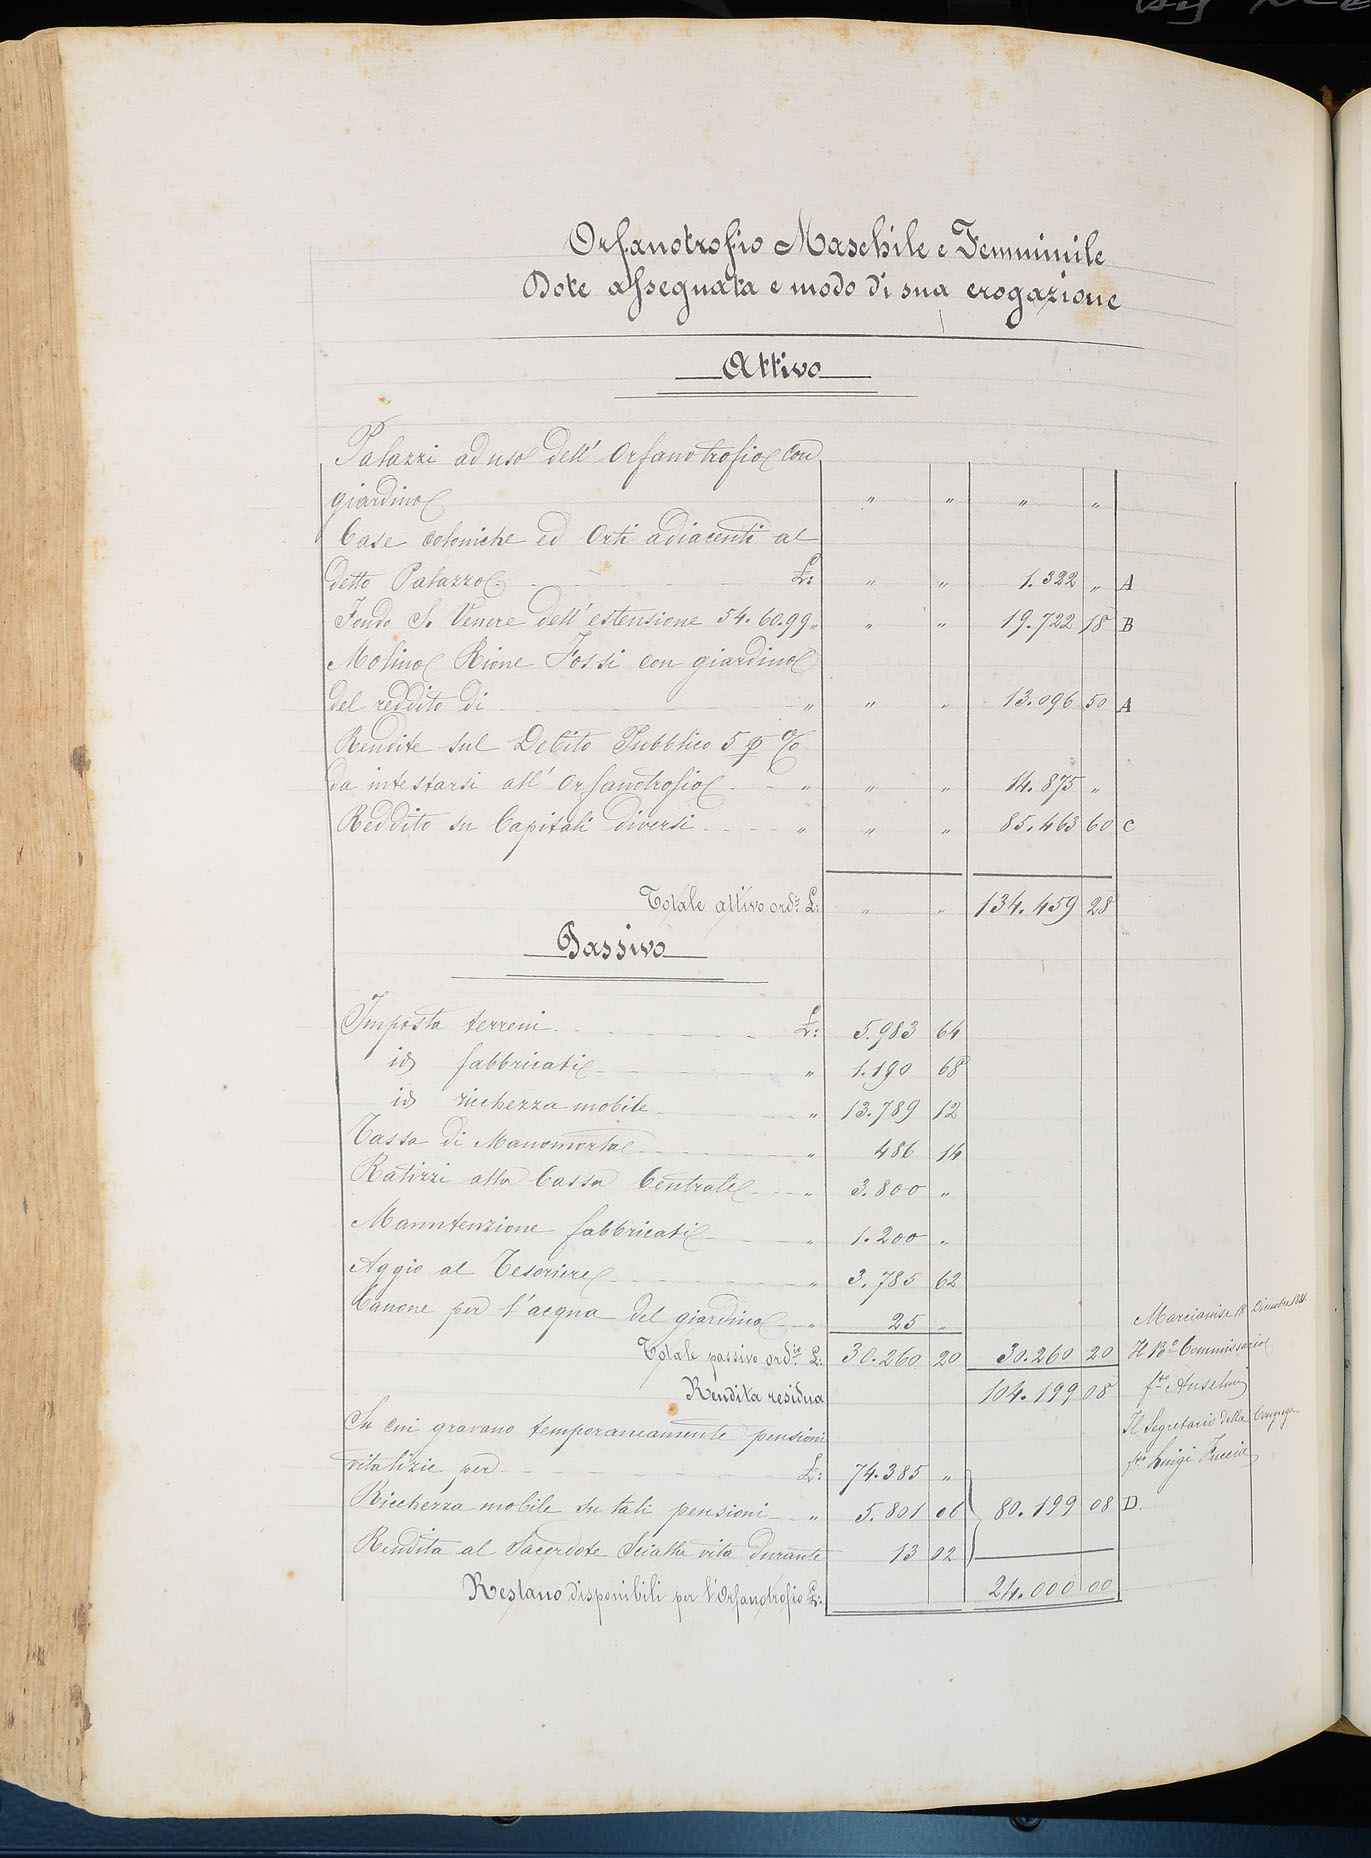 Orfanotrofio Maschile e Femminile
Dote assegnata e modo di sua erogazione
Attivo
Palazzi ad uso dell' Orfanotrofio con
giardino " " " "
Case coloniche ed Orti adiacenti al
detto Palazzo £: " " 1.322 " A
Fondo S. Venere dell' estensione 54.60.99 " " " 19.722 18 B
Molino Rione Fossi con giardino
del reddito di " " " 13.096 50 A
Rendite sul Debito Pubblico 5 p %
da intestarsi all' Orfanotrofio " " " 14.875 "
Reddito su Capitali diversi " " " 85.463 60 C
Totale attivo ord.º £: " " 134.459 28
Passivo
Imposta terreni £: 5.983 64
id fabbricati " 1.190 68
id ricchezza mobile " 13.789 12
Tassa di Manomorta " 486 14
Ratizzi alla Cassa Centrale " 3.800 "
Manutenzione fabbricati " 1.200 "
Aggio al Tesoriere " 3.785 62
Canone per l'acqua del giardino " 25 "
Totale passivo ord.io £: 30.260 20 30.260 20
Rendita residua 104.199 08
Su cui gravano temporaneamente pensioni
vitalizie per £: 74.385 "
Ricchezza mobile su tali pensioni " 5.801 06 80.199 08 D.
Rendita al Sacerdote Scialla vita durante 13 02
Restano disponibili per l'Orfanotrofio £: 24.000 00
Marcianise 18 Dicembre
Il R.º Commissario
f.to Anselmi
Il Segretario della Congrega
f.to Luigi